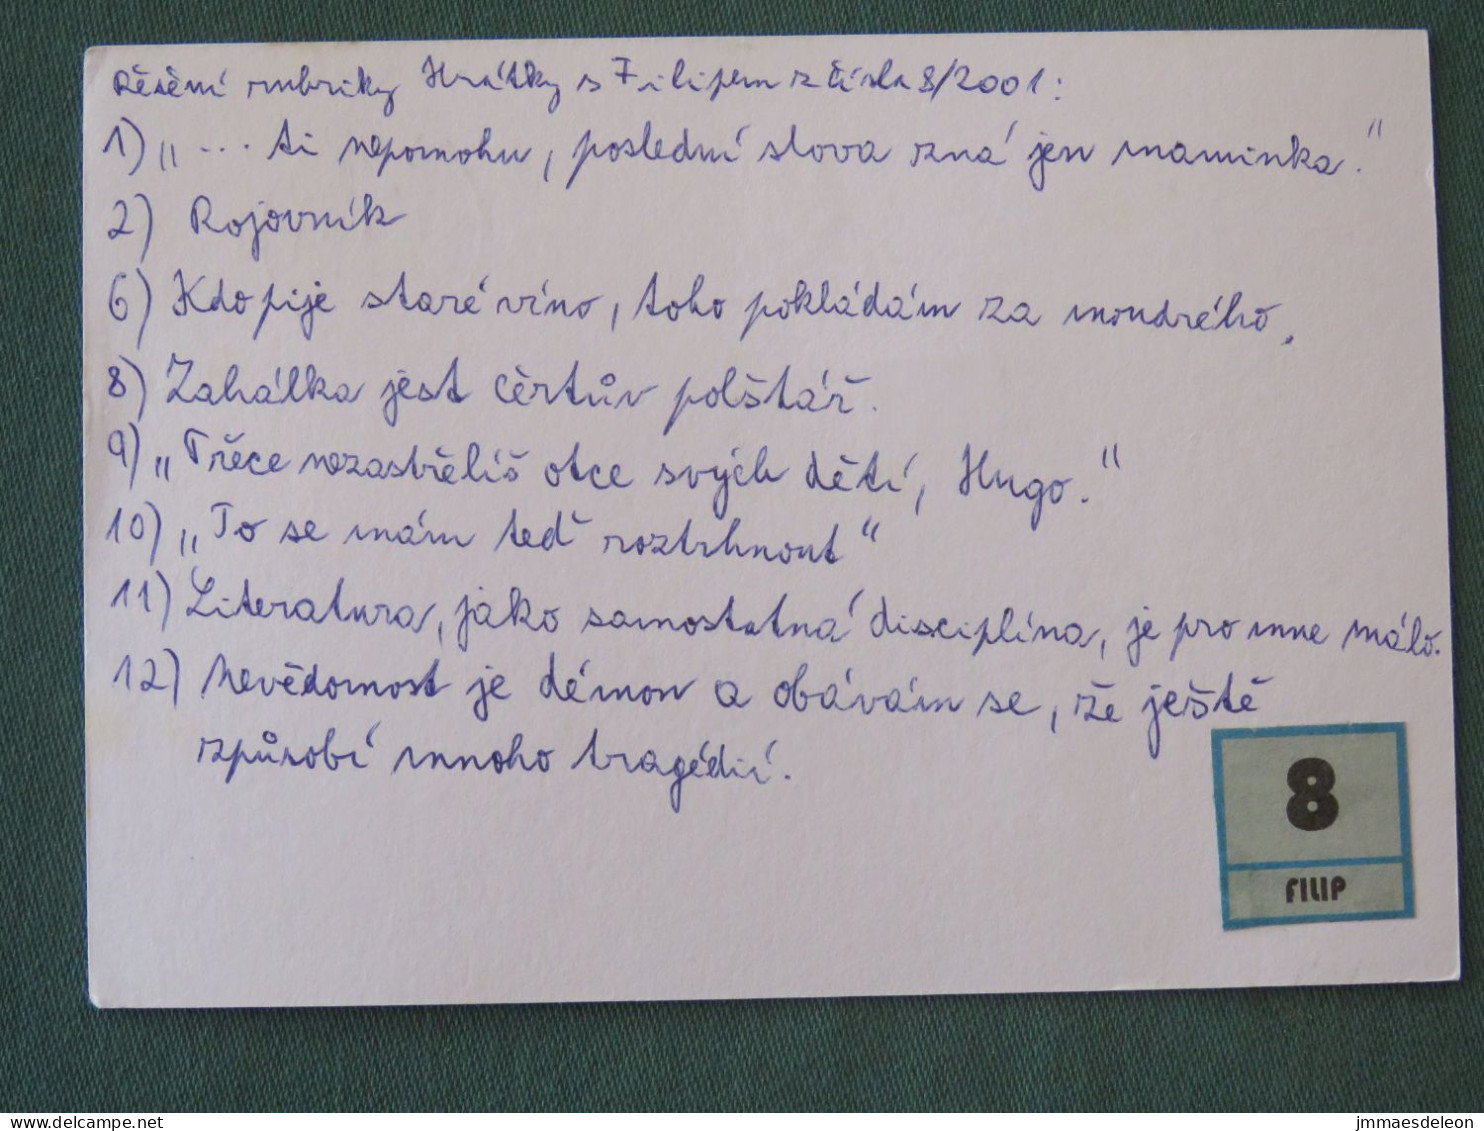 Řešení rubriky Hrátky s Filipem z čísla 8/2001:
1) „... ti nepomohu, poslední slova zná jen maminka."
2) Rojovník
6) Kdo pije staré víno, toho pokládám za moudrého.
8) Zahálka jest čertův polštář.
9) „Přece nezastřelíš otce svých dětí, Hugo."
10) „To se mám teď roztrhnout"
11) Literatura, jako samostatná disciplína, je pro mne málo.
12) Nevědomost je démon a obávám se, že ještě
způsobí mnoho tragédií.
8
FILIP
www.delcampe.net
jmmaesdeleon